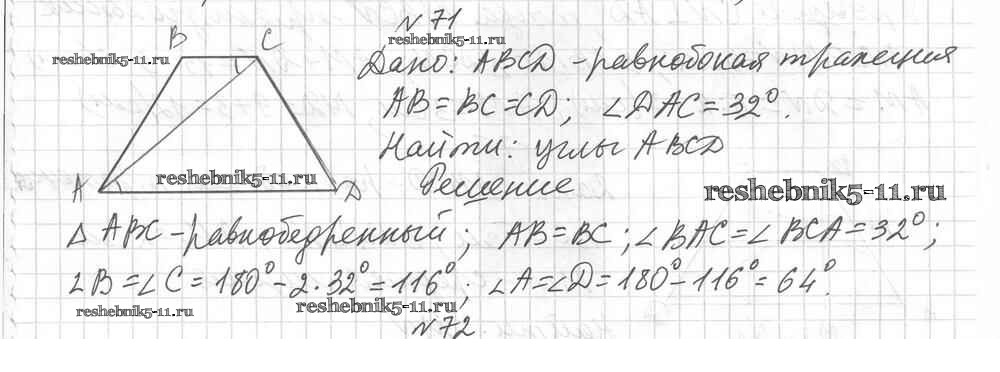 N 71
reshebnik5-11.ru
B C
reshebnik5-11.ru
Дано: ABCD - равнобокая трапеция
AB = BC = CD; ∠DAC = 32°.
Найти: углы ABCD
A D
reshebnik5-11.ru
Решение
reshebnik5-11.ru
Δ ABC - равнобедренный; AB = BC; ∠BAC = ∠BCA = 32°;
∠B = ∠C = 180° - 2·32° = 116°; ∠A = ∠D = 180° - 116° = 64°.
reshebnik5-11.ru reshebnik5-11.ru
N 72